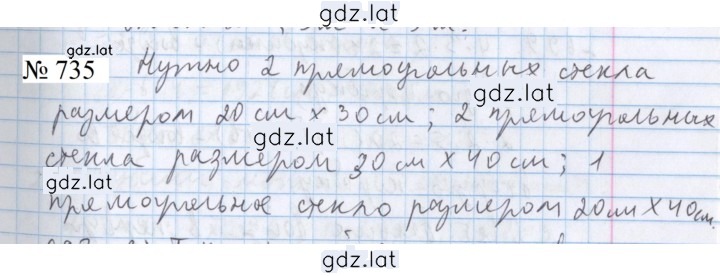 gdz.lat
gdz.lat
№ 735 Нужно 2 прямоугольных стекла
gdz.lat
размером 20 см х 30 см; 2 прямоугольных
gdz.lat
стекла размером 30 см х 40 см; 1
gdz.lat
прямоугольное стекло размером 20 см х 40 см.
gdz.lat
gdz.lat